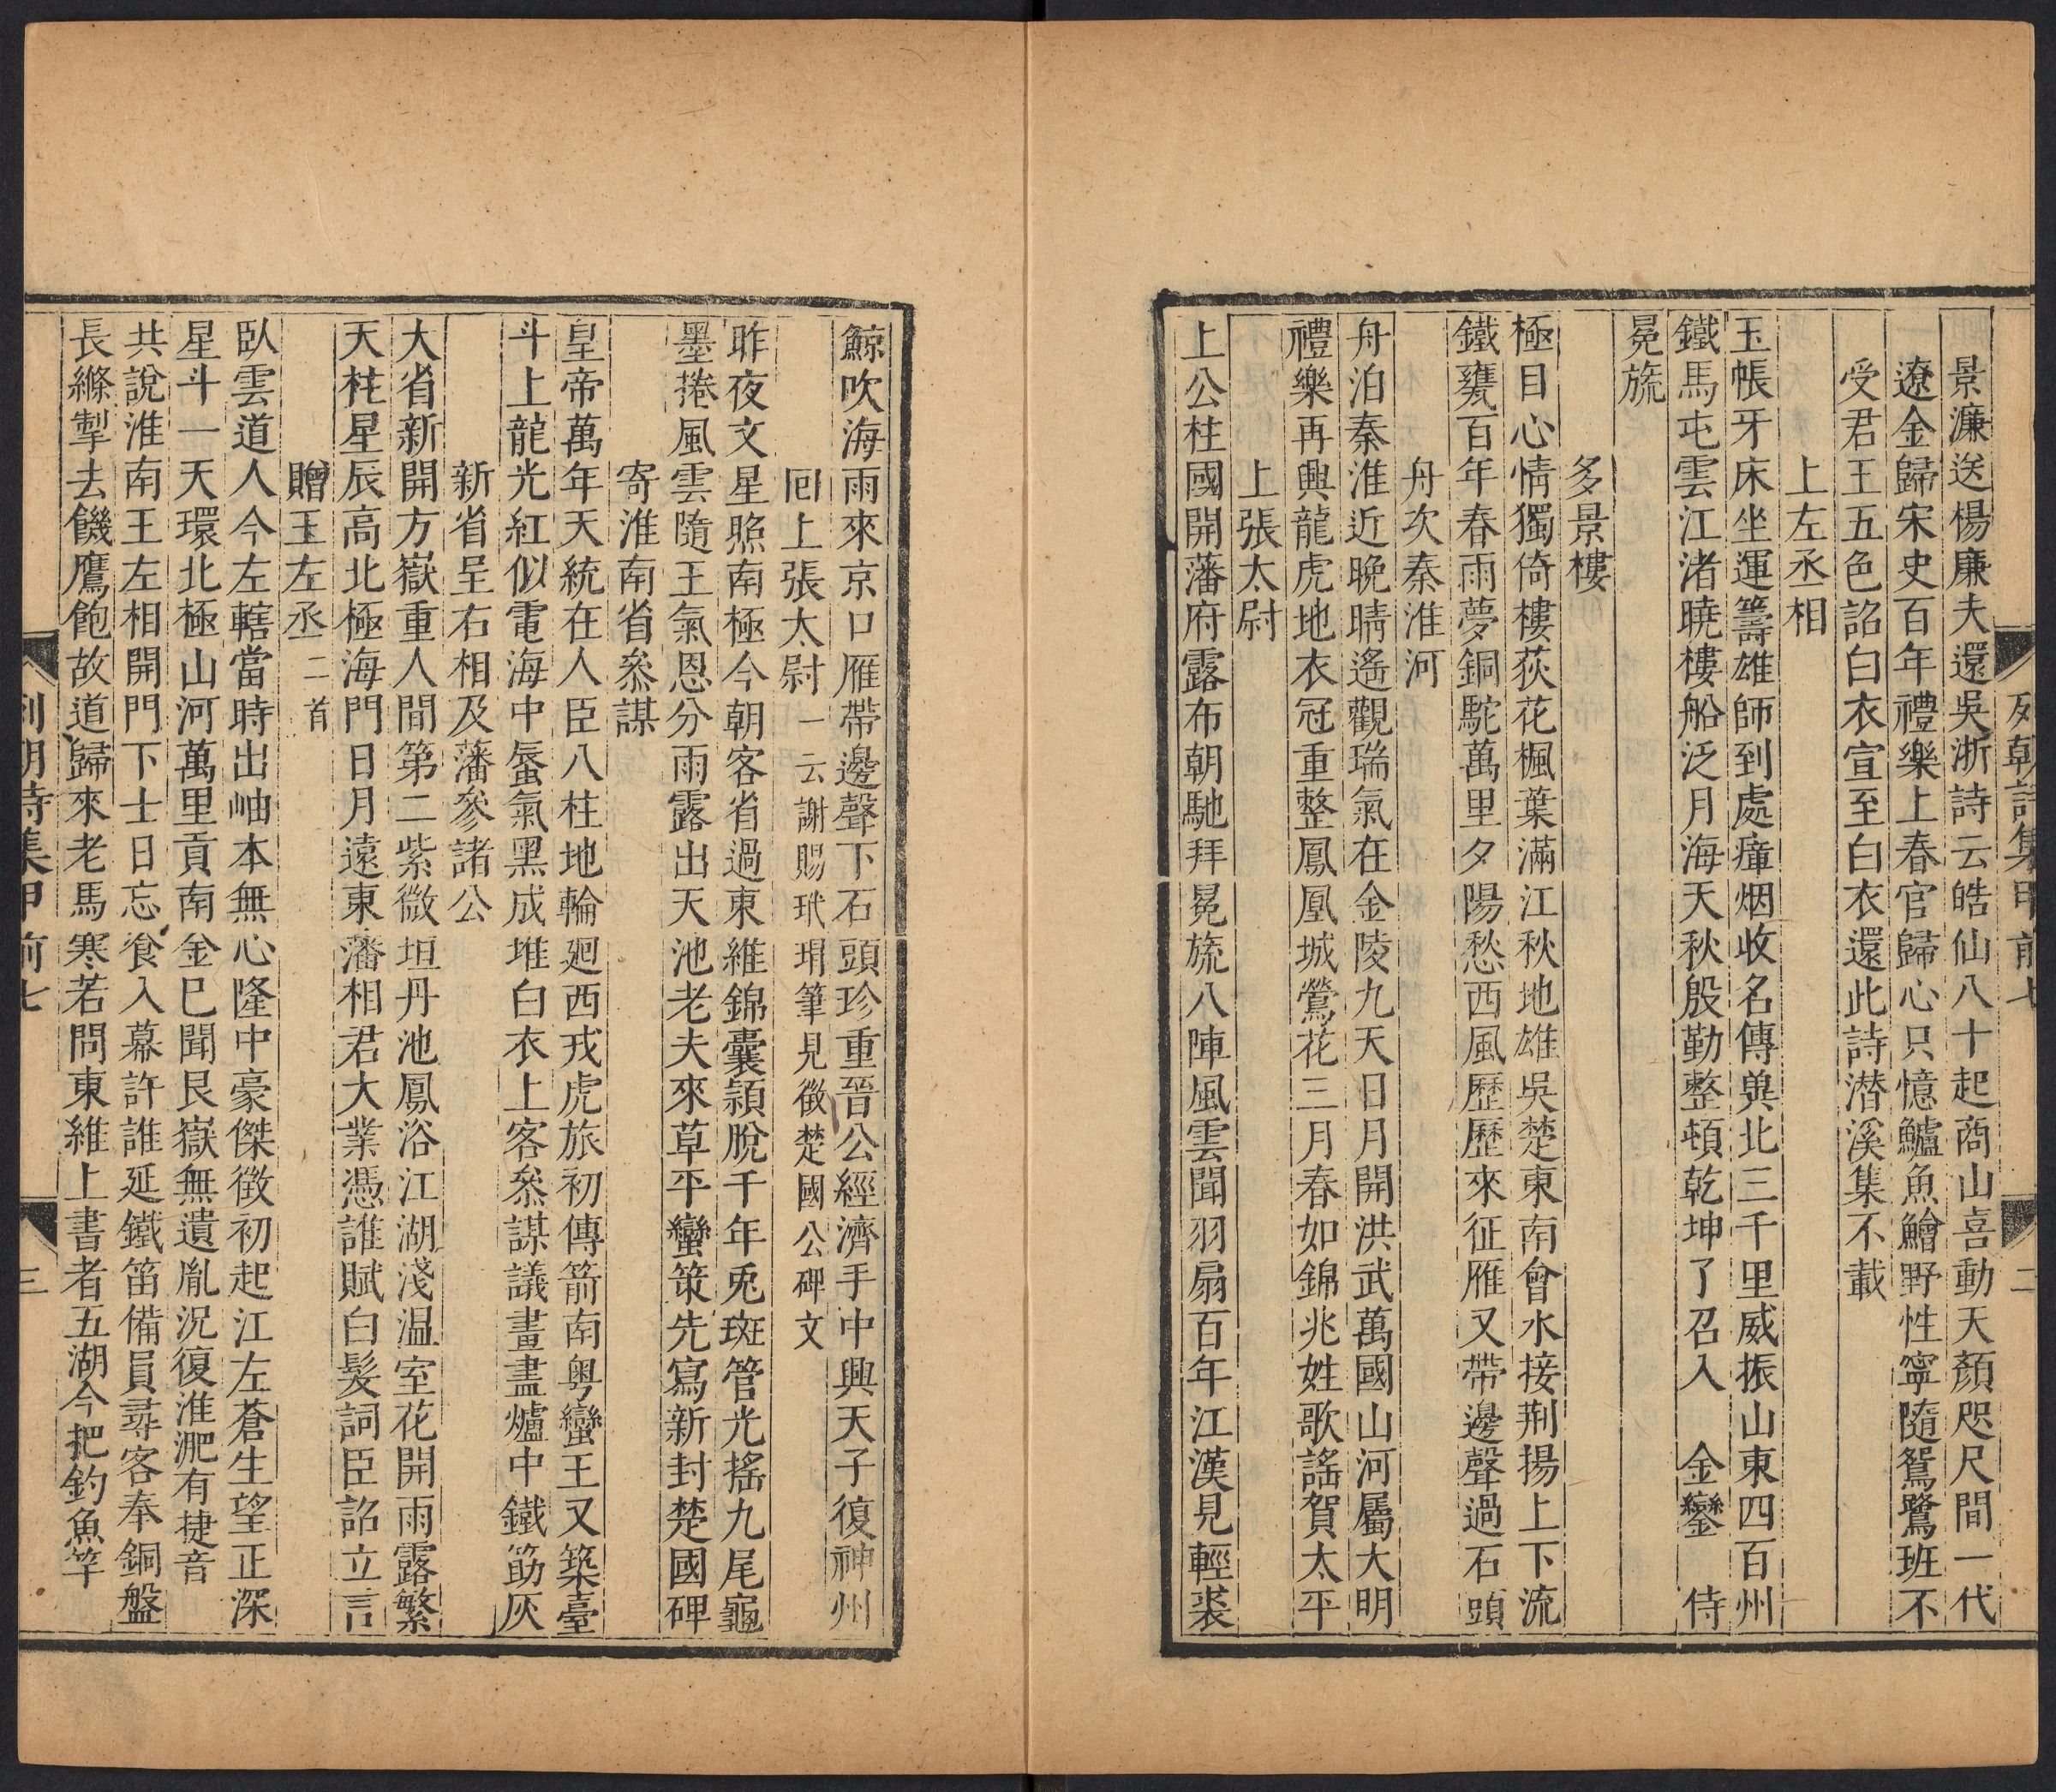 列朝詩集甲前七
二
景濂送楊廉夫還吳浙詩云皓仙八十起商山喜動天顏咫尺間一代
遼金歸宋史百年禮樂上春官歸心只憶鱸魚鱠野性寧隨鴛鷺班不
受君王五色詔白衣宣至白衣還此詩潛溪集不載
上左丞相
玉帳牙床坐運籌雄師到處瘴烟收名傳與北三千里威振山東四百州
鐵馬屯雲江渚曉樓船泛月海天秋殷勤整頓乾坤了召入 金鑾 侍
冕旒
多景樓
極目心情獨倚樓荻花楓葉滿江秋地雄吳楚東南會水接荆揚上下流
鐵甕百年春雨夢銅駝萬里夕陽愁西風歷歷來征雁又帶邊聲過石頭
舟次秦淮河
舟泊秦淮近晚晴遙觀瑞氣在金陵九天日月開洪武萬國山河屬大明
禮樂再興龍虎地衣冠重整鳳凰城鶯花三月春如錦兆姓歌謠賀太平
上張太尉
上公柱國開藩府露布朝馳拜冕旒八陣風雲聞羽扇百年江漢見輕裘
鯨吹海雨來京口雁帶邊聲下石頭珍重晉公經濟手中興天子復神州
囘上張太尉一云謝賜玳瑁筆見徵楚國公碑文
昨夜文星照南極今朝客省過東維錦囊潁脫千年兎斑管光搖九尾龜
墨捲風雲隨王氣恩分雨露出天池老夫來草平蠻策先寫新封楚國碑
寄淮南省叅謀
皇帝萬年天統在人臣八柱地輪廻西戎虎旅初傳箭南粤蠻王又築臺
斗上龍光紅似電海中蜃氣黑成堆白衣上客叅謀議畫盡爐中鐵筯灰
新省呈右相及藩參諸公
大省新開方嶽重人間第二紫微垣丹池鳳浴江湖淺温室花開雨露繁
天柱星辰高北極海門日月遠東藩相君大業憑誰賦白髮詞臣詔立言
贈王左丞二首
臥雲道人今左轄當時出岫本無心隆中豪傑徵初起江左蒼生望正深
星斗一天環北極山河萬里貢南金巳聞艮嶽無遺胤況復淮淝有捷音
共說淮南王左相開門下士日忘飡入幕許誰延鐵笛備員尋客奉銅盤
長縧掣去饑鷹飽故道歸來老馬寒若問東維上書者五湖今把釣魚竿
列朝詩集甲前七
三